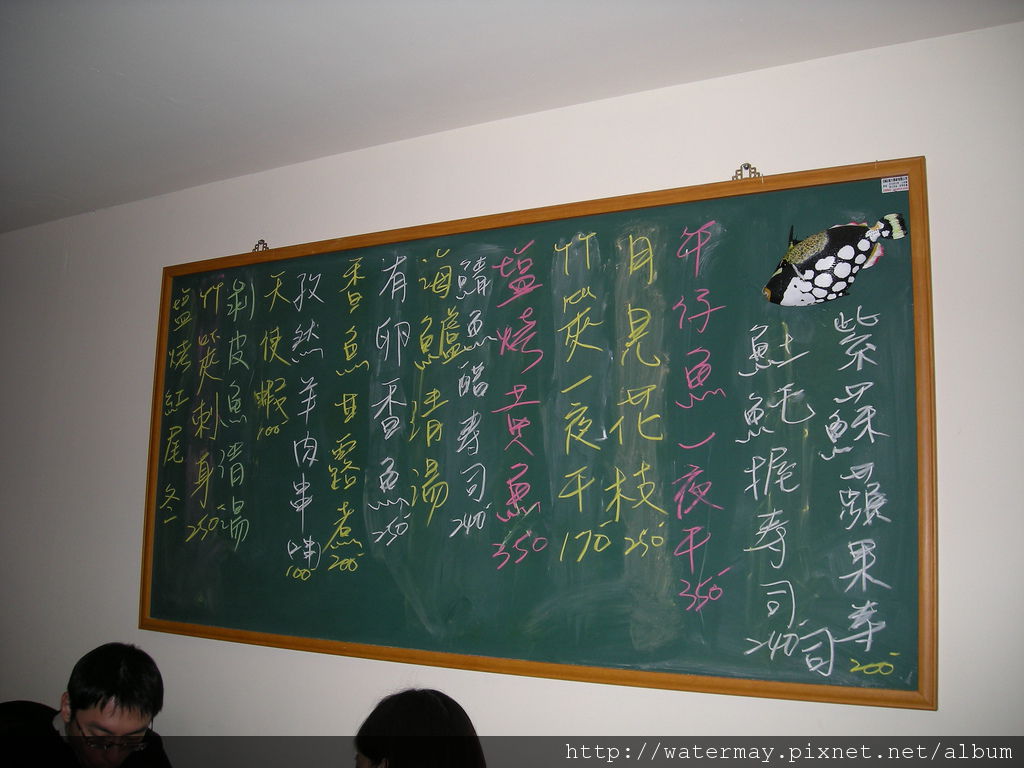 紫蘇蘋果壽司 200
魟魠握壽司 240
午仔魚一夜干 350
月見花枝 250
竹筴一夜干 170
塩烤黃魚 350
鯖魚醋壽司 240
海鱸清湯
有卵香魚 250
香魚甘露煮 200
孜然羊肉串(2串) 100
天使蝦 100
剝皮魚清湯
竹筴刺身 250
塩烤紅尾冬
http://watermay.pixnet.net/album